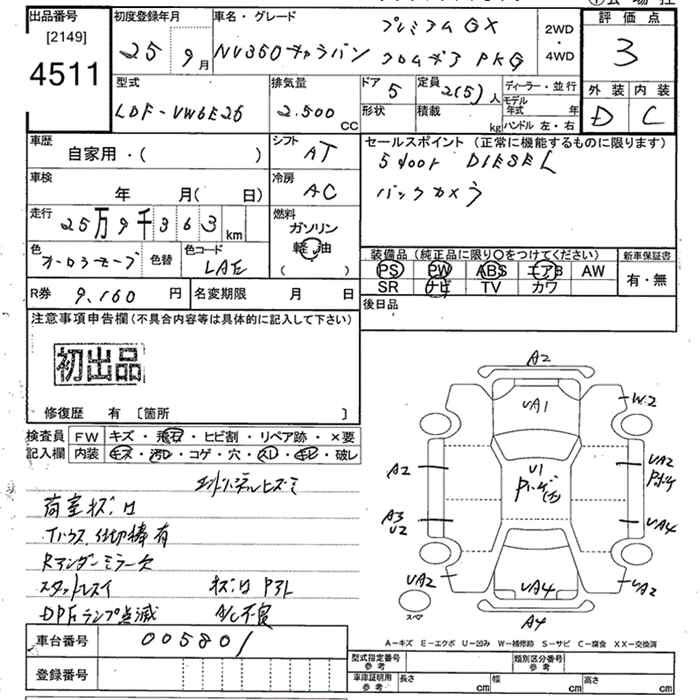 出品番号
[2149]
4511
初度登録年月
25年 9月
車名・グレード
プレミアムGX
NV350キャラバン クロムギア PKG
2WD
・
4WD
評価点
3
外装 内装
D C
型式
LDF-VW6E26
排気量
2.500 CC
ドア 5
形状
定員 2(5)人
積載 kg
ディーラー・並行
モデル年式 年
ハンドル 左・右
車歴
自家用・( )
シフト
AT
セールスポイント (正常に機能するものに限ります)
5door DIESEL
バックカメラ
車検
年 月( 日)
冷房
AC
走行
25万9千363km
燃料
ガソリン
軽油
( )
色
色替
色コード
LAE
装備品(純正品に限り○をつけてください)
PS PW ABS エアB AW
SR ナビ TV カワ
新車保証書
有・無
R券 9,160円
名変期限 月 日
後日品
注意事項申告欄(不具合内容等は具体的に記入して下さい)
初出品
修復歴 有 〔箇所 〕
検査員記入欄
FW キズ・飛石・ヒビ割・リペア跡・×要
内装 キズ・汚レ・コゲ・穴・スレ・キレ・破レ
荷室キズ・凹
Rアンダーミラー欠
スタットレスイ
DPFランプ点滅 A/C不良
A2
UA1
W2
A2
U1
UA2
A3
U2
UA4
UA2
UA4
UA2
スペア
A4
A-キズ E-エクボ U-凹み W-補修跡 S-サビ C-腐食 XX-交換済
車台番号 005801
登録番号
型式指定番号参考
類別区分番号参考
車庫証明用参考 長さ cm 幅 cm 高さ cm